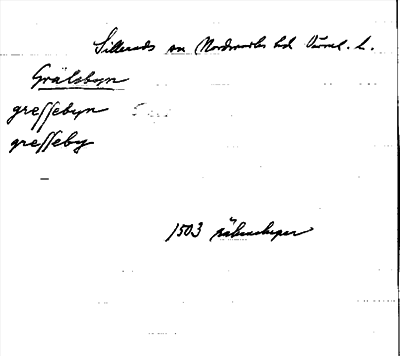 Silleruds sn Nordmarks hd Värml. l.
Grälsbyn
greſſebyn
greſſeby
1503 räkenskaper